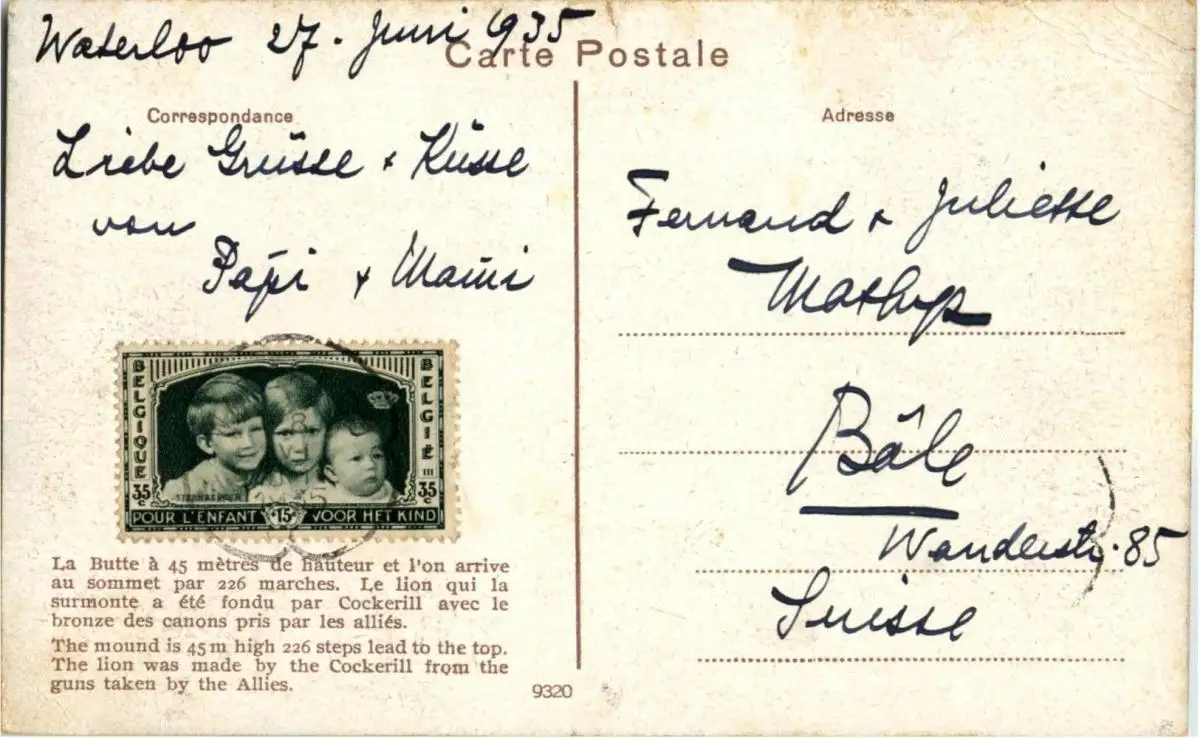 Waterloo 27. Juni 1935
Carte Postale
Correspondance
Liebe Grüsse + Küsse
von
Papi + Mami
BELGIQUE
BELGIË
III
35 c
35 c
POUR L'ENFANT 15 c VOOR HET KIND
La Butte à 45 mètres de hauteur et l'on arrive
au sommet par 226 marches. Le lion qui la
surmonte a été fondu par Cockerill avec le
bronze des canons pris par les alliés.
The mound is 45 m high 226 steps lead to the top.
The lion was made by the Cockerill from the
guns taken by the Allies.
9320
Adresse
Fernand + Juliette
Bâle
Wanderstr. 85
Suisse